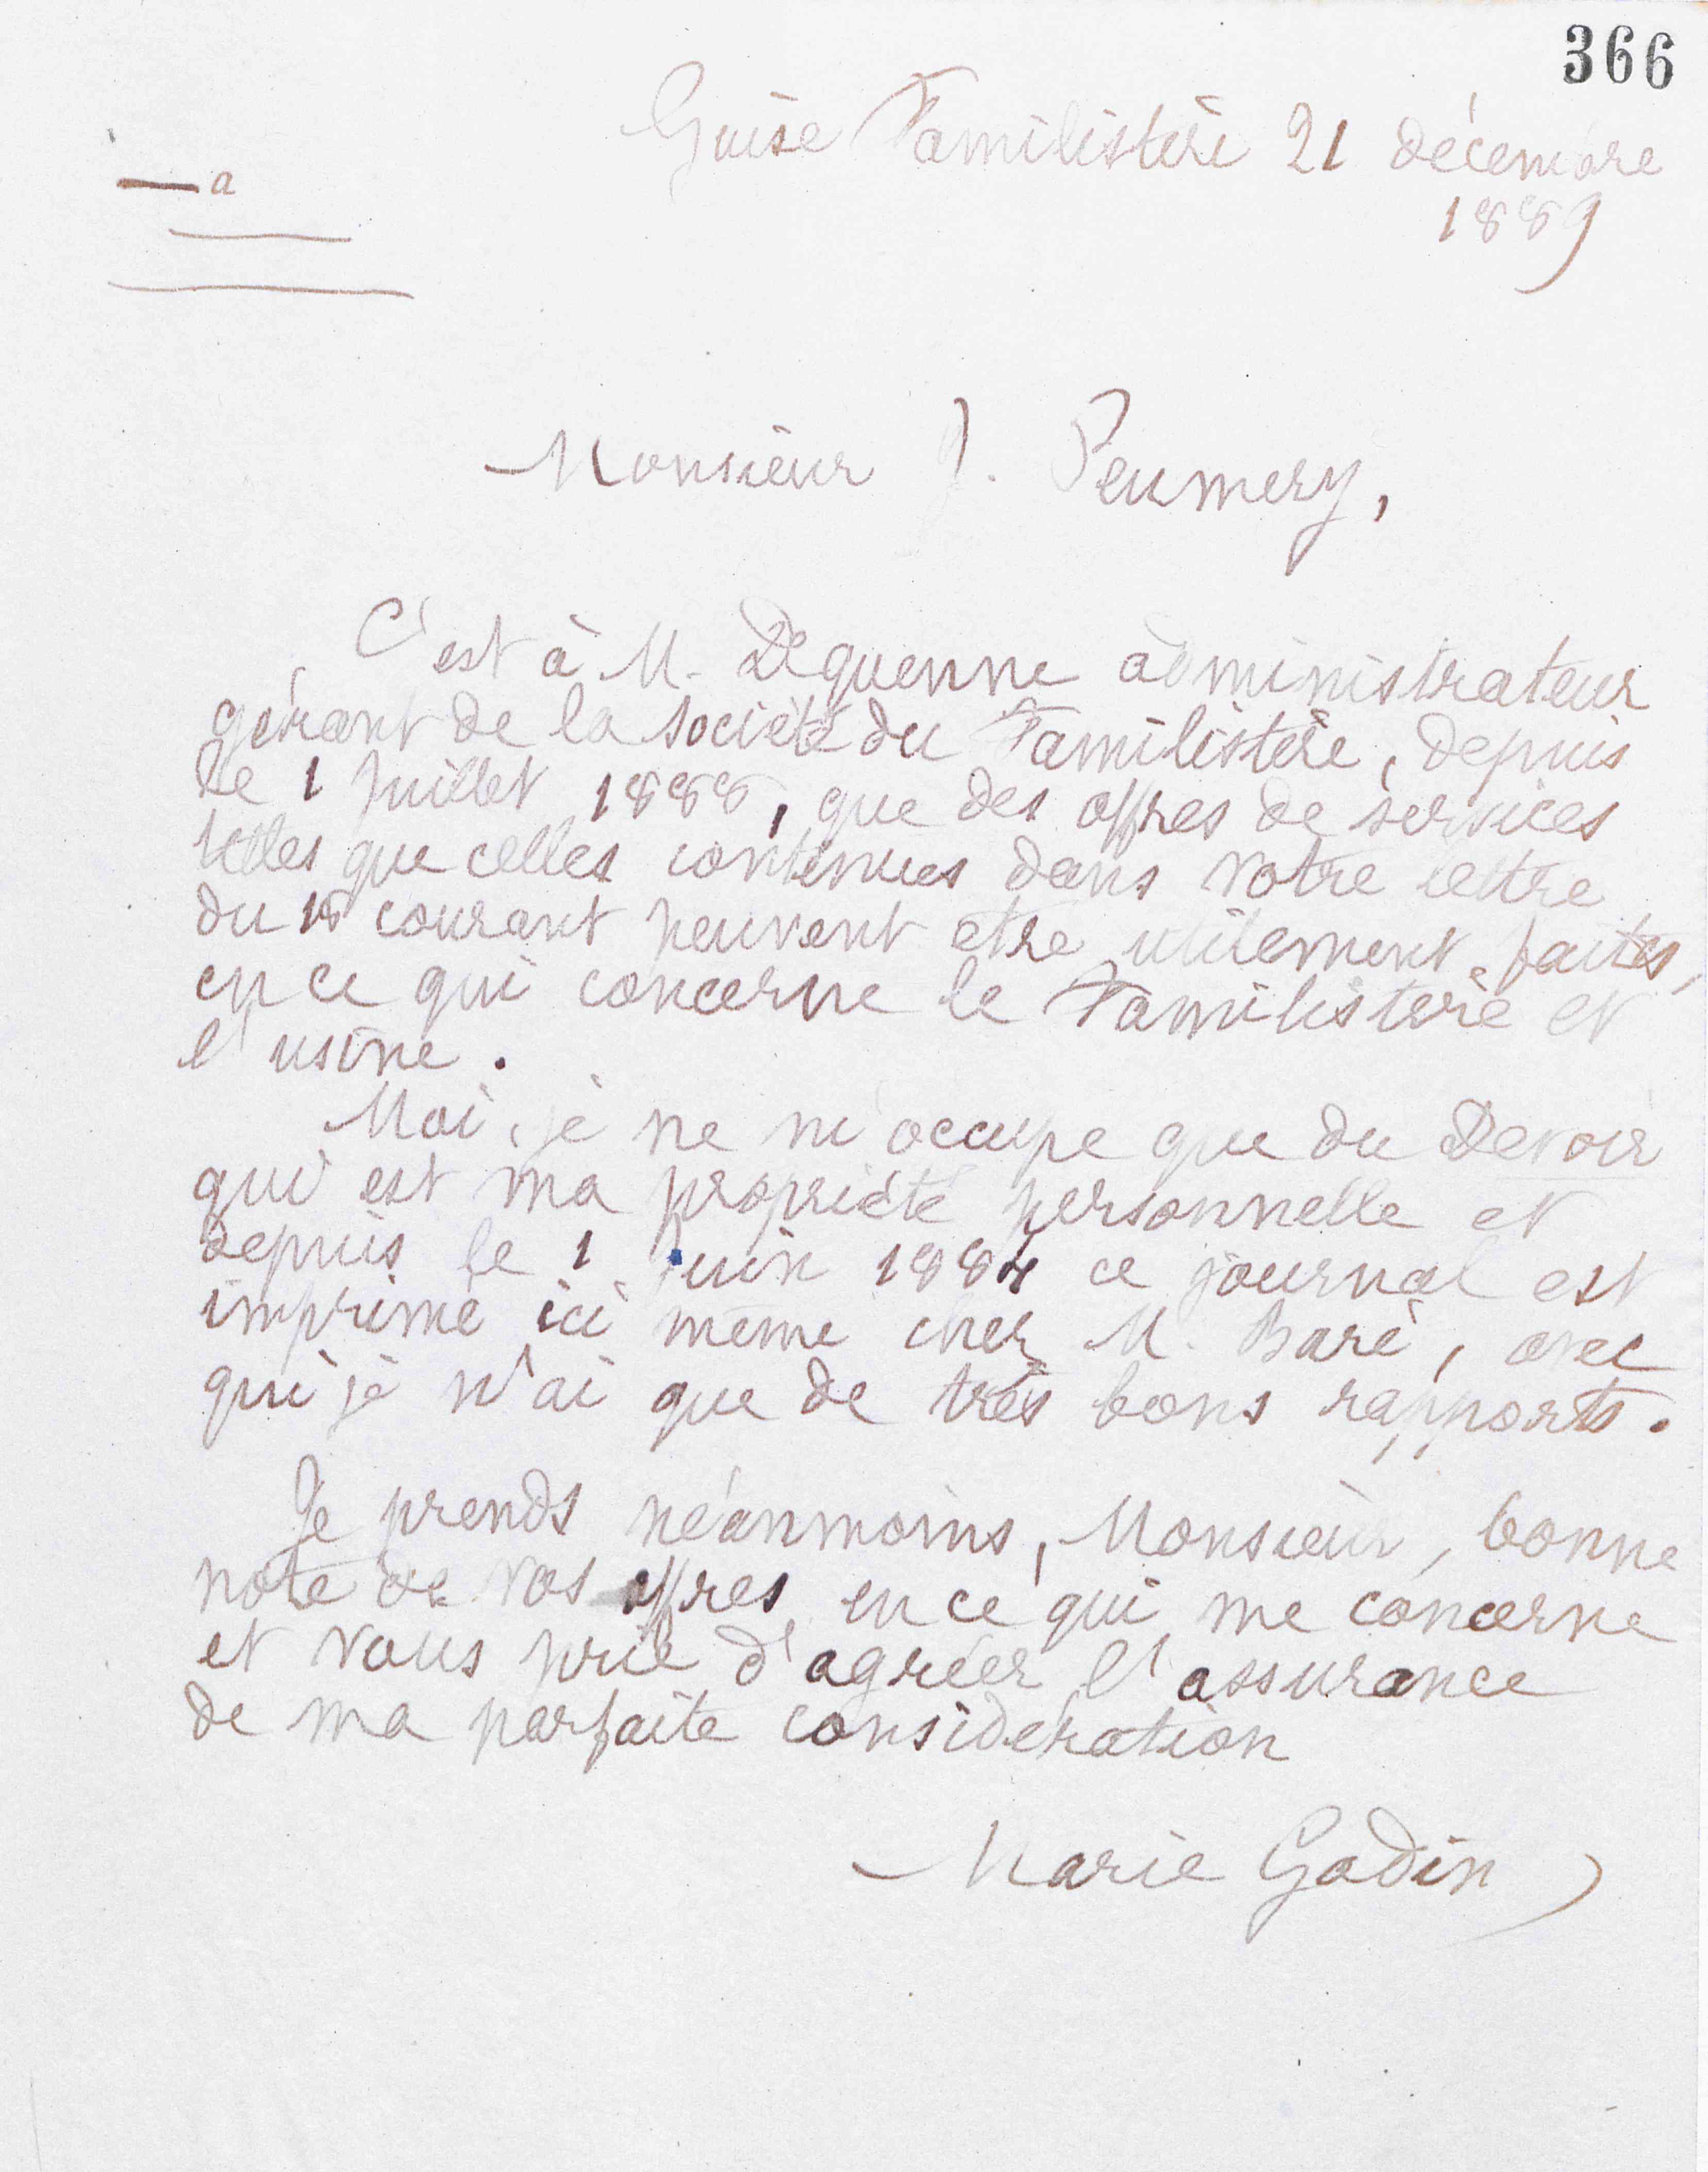 366
Guise Familistère 21 décembre
1889
a
Monsieur J. Peumery,
C'est à M. Dequenne administrateur
gérant de la société du Familistère, depuis
le 1 Juillet 1888, que des offres de services
telles que celles contenues dans votre lettre
du 18 courant peuvent être utilement faites,
en ce qui concerne le Familistère et
l'usine.
Moi, je ne m'occupe que du Devoir
qui est ma propriété personnelle et
depuis le 1 Juin 1884 ce journal est
imprimé ici même chez M. Baré, avec
qui je n'ai que de très bons rapports.
Je prends néanmoins, Monsieur, bonne
note de vos offres en ce qui me concerne
et vous prie d'agréer l'assurance
de ma parfaite considération
Marie Godin